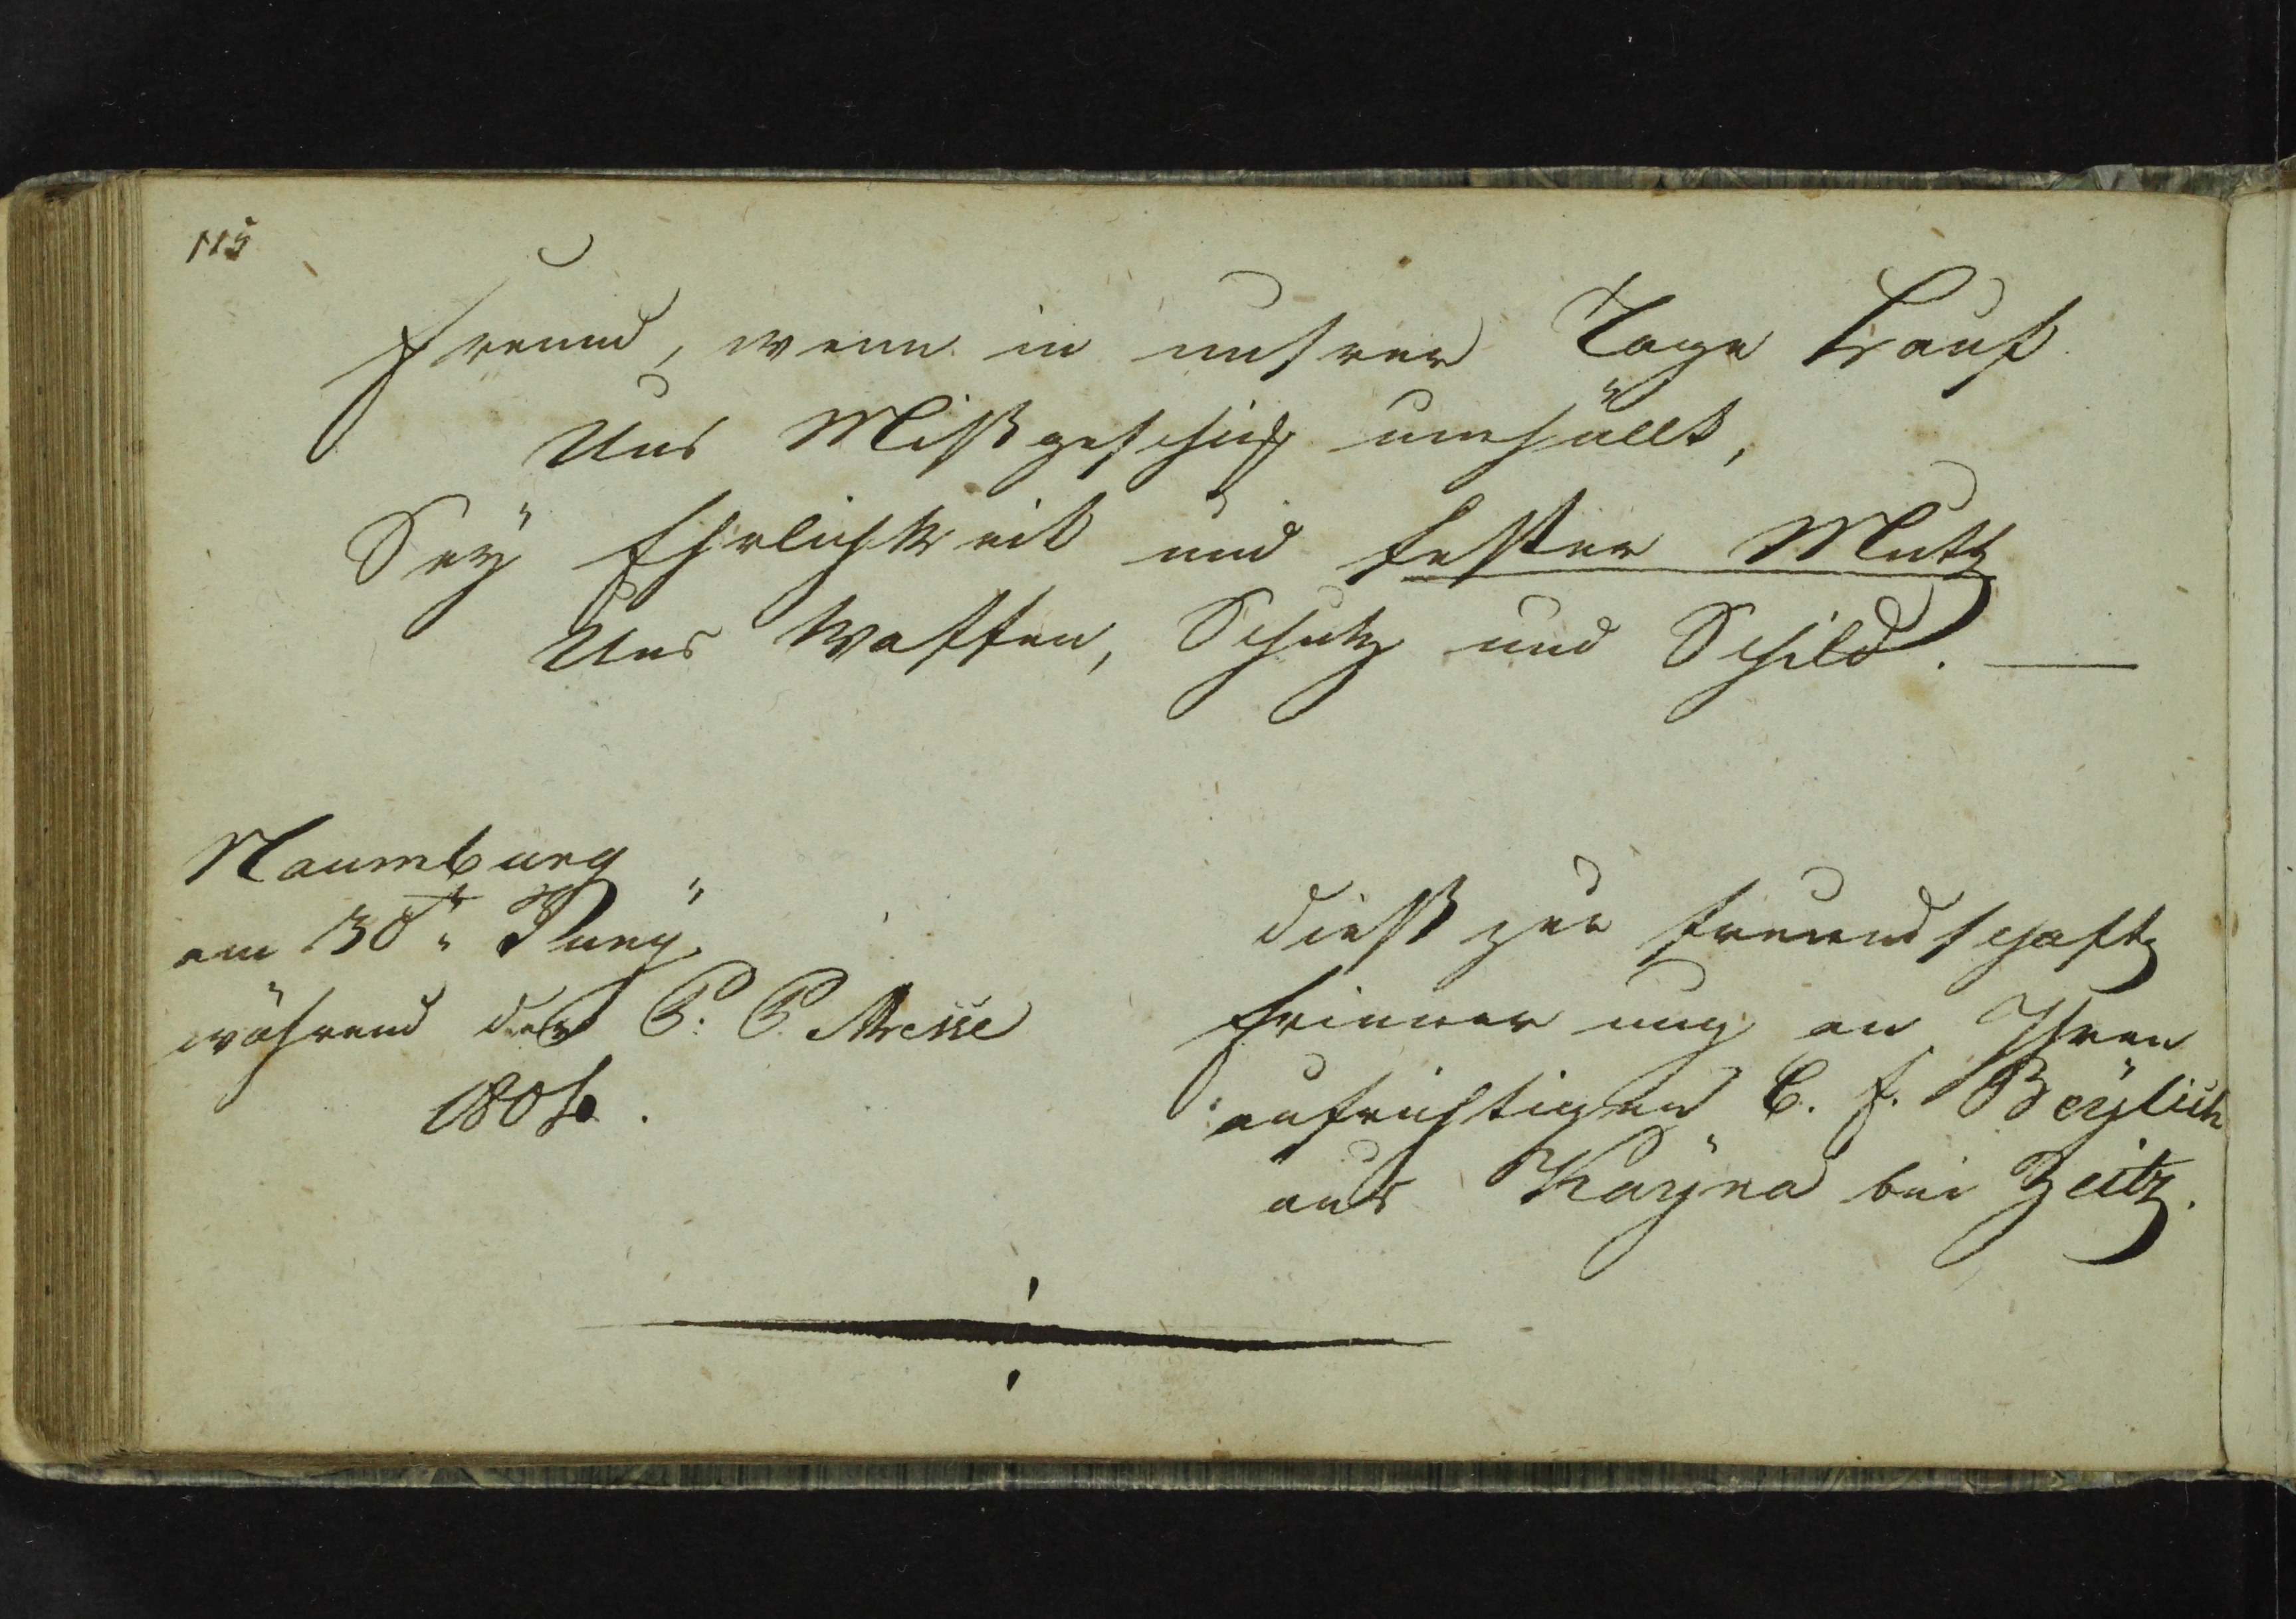 115
Freund, wenn in unsrer Tage Lauf
Uns Mißgeschick umhüllt,
Sey Ehrlichkeit und fester Muth
Uns Waffen, Schutz und Schild. —
Naumburg
am 30t. Juny.
während der P. P. Messe
180
Dieß zur freundschaftl
Erinnerung an Ihren
aufrichtigen C. F. Beÿlich
aus Kaÿna bei Zeitz.